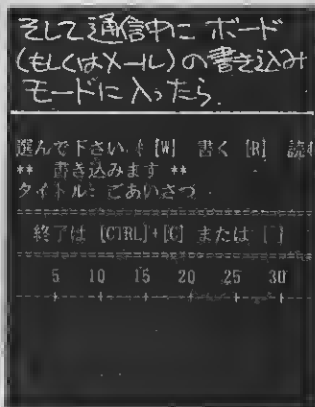 そして通信中に ボード
(もしくはメール)の書き込み
モードに入ったら
選んで下さい [W] 書く [R] 読む
** 書き込みます **
タイトル: ごあいさつ
終了は [CTRL]+[G] または [^]
5 10 15 20 25 30